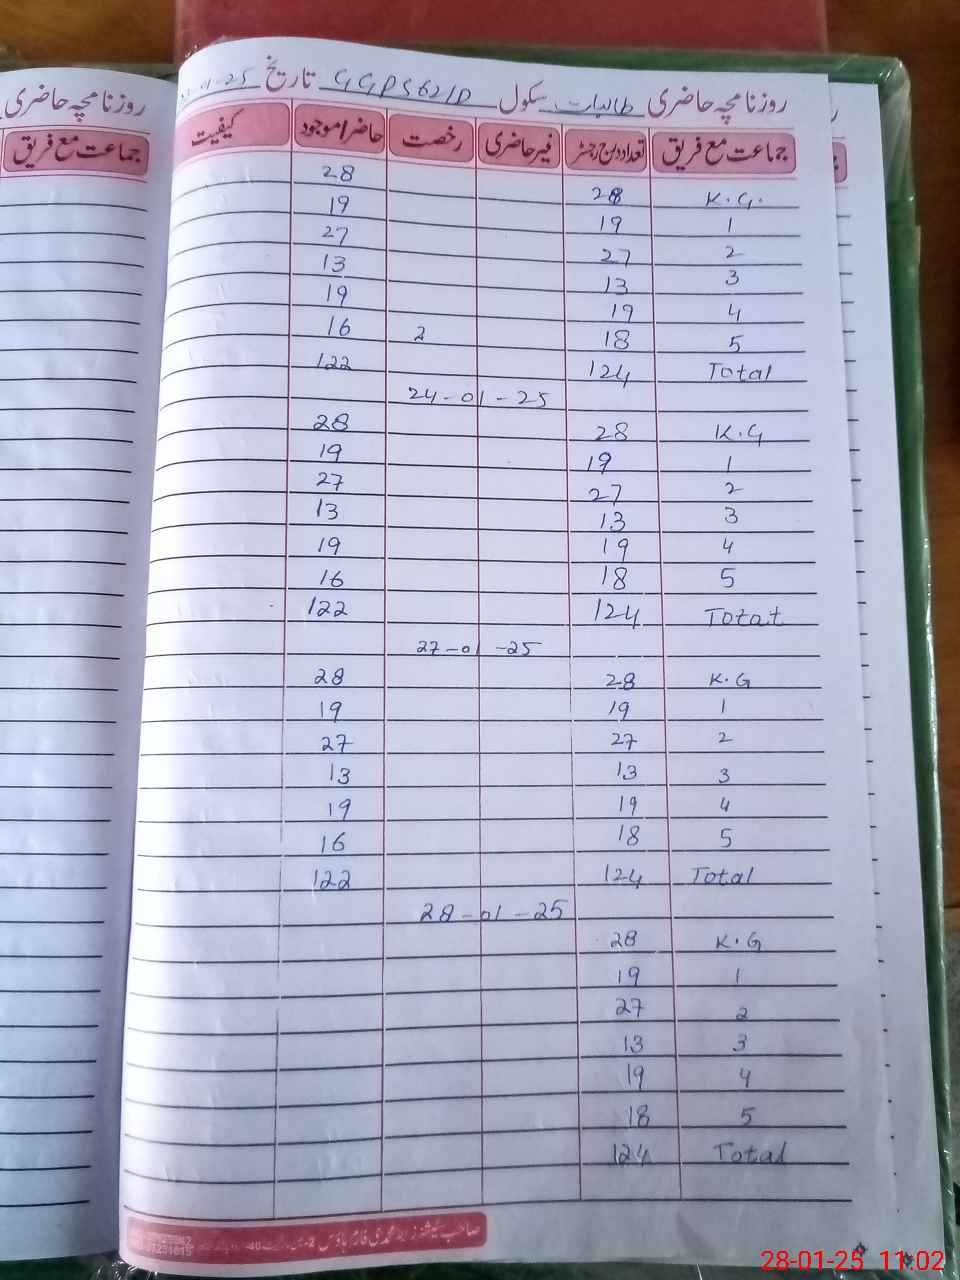 روزنامچہ حاضری طالبات سکول GGPS 621/P تاریخ -01-25
جماعت مع فریق تعداد درج رجسٹر غیر حاضری رخصت حاضر/موجود کیفیت
K.G. 28 28
1 19 19
2 27 27
3 13 13
4 19 19
5 18 2 16
Total 124 122
24-01-25
K.G 28 28
1 19 19
2 27 27
3 13 13
4 19 19
5 18 16
Total 124 122
27-01-25
K.G 28 28
1 19 19
2 27 27
3 13 13
4 19 19
5 18 16
Total 124 122
28-01-25
K.G 28
1 19
2 27
3 13
4 19
5 18
Total 124
روزنامچہ حاضری
جماعت مع فریق
28-01-25 11:02